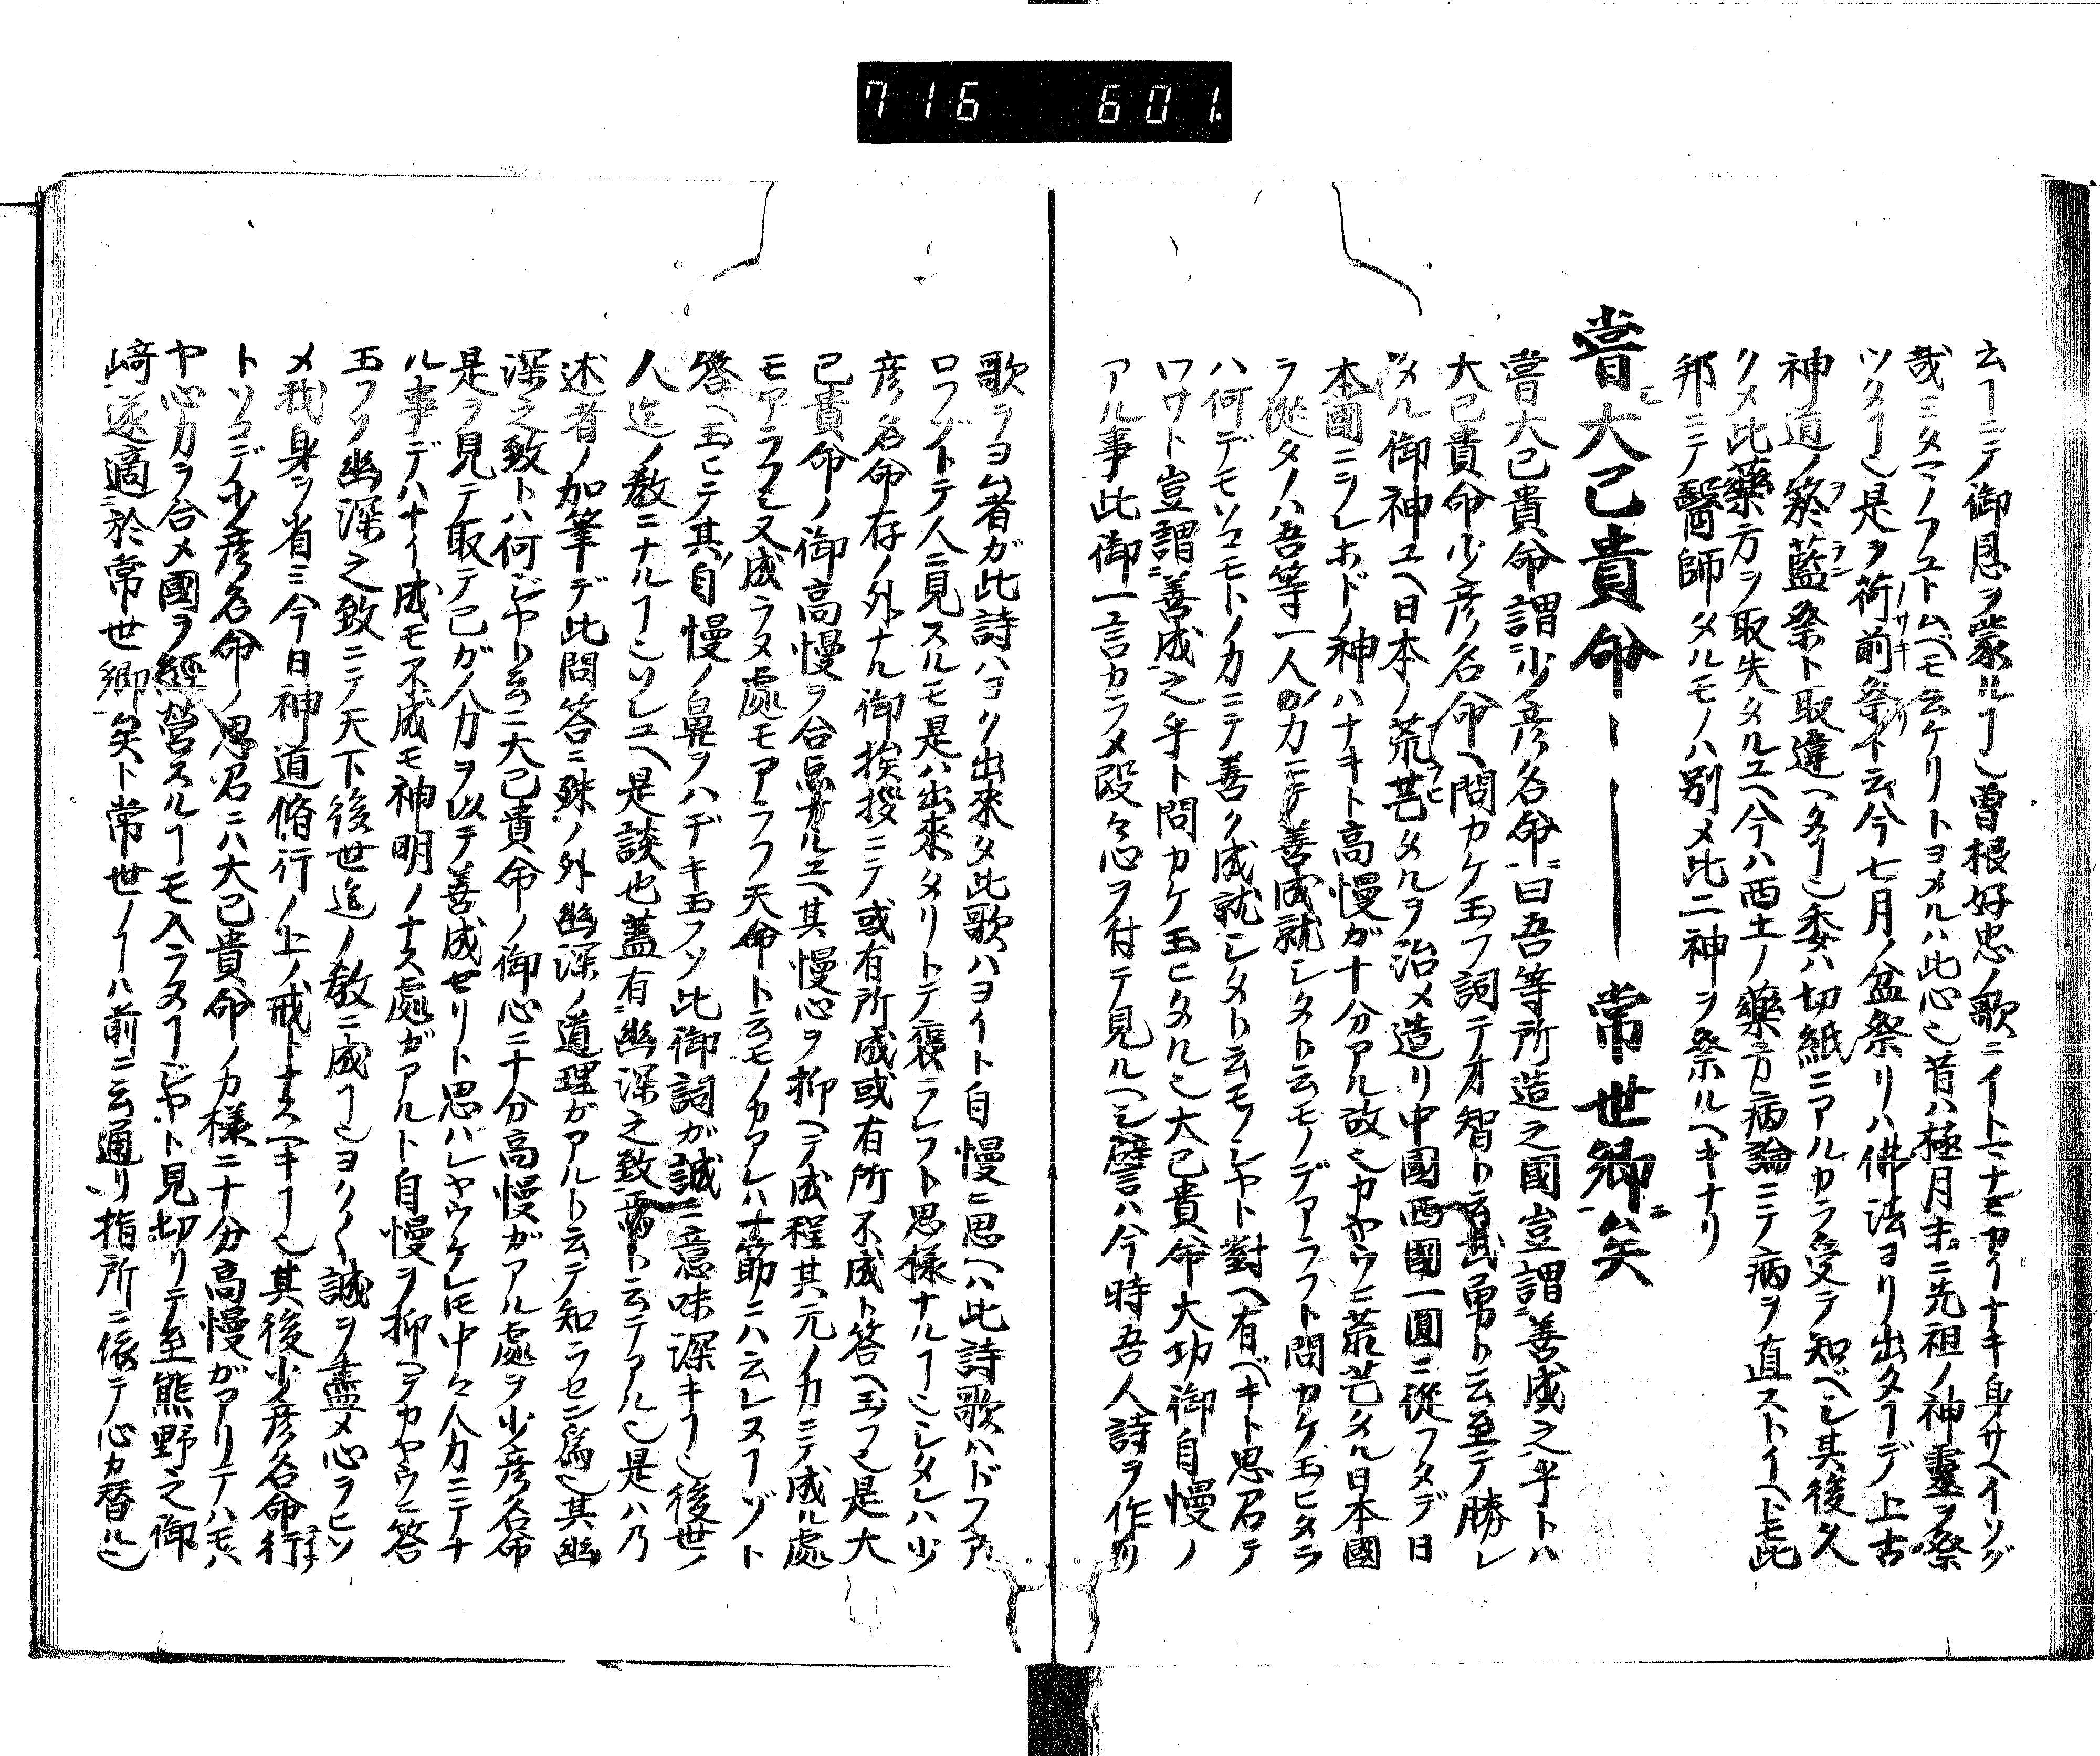 716 601.
云ヿニテ御恩ヲ蒙ルヿ也曽根好忠ノ歌ニイトマナモカイナキ身サヘイソグ
哉ミタマノフユトムベモ云ケリトヨメルハ此心也昔ハ極月末ニ先祖ノ神靈ヲ祭
ツタヿ也是ヲ荷前祭ト云今七月ノ盆祭リハ佛法ヨリ出タヿデ上古
神道ノ盂蘭祭ト取違ヘタヿ也委ハ切紙ニアルカラ受テ知ベシ其後久
クメ此藥方ヲ取失タルユヘ今ハ西土ノ藥方病論ニテ病ヲ直ストイヘト𪜈此
邦ニテ醫師タルモノハ別メ此二神ヲ祭ルヘキナリ
嘗大己貴命ーー常世郷矣
嘗大己貴命謂少彦名命曰吾等所造之國豈謂善成之乎トハ
大己貴命少彦名命ヘ問カケ玉フ詞テ才智ト云武勇ト云至テ勝レ
タル御神ユヘ日本ノ荒芒タルヲ治メ造リ中國西國一圓ニ從フタデ日
本國ニコレホドノ神ハナキト高慢ガ十分アル故也カヤウニ荒芒タル日本國
ヲ從タノハ吾等一人ノ力ニテ善成就シタト云モノデアラフト問カケ玉ヒタラ
ハ何デモソコモトノ力ニテ善ク成就シタト云モノシヤト對ヘ有ベキト思召テ
ワサト豈謂善成之乎ト問カケ玉ヒタル也大己貴命大功御自慢ノ
アル事此御一言カラメ段々心ヲ付テ見ルヘシ譬ハ今時吾人詩ヲ作リ
歌ヲヨム者ガ此詩ハヨク出來タ此歌ハヨイト自慢ニ思ヘハ此詩歌ハドフア
ロフゾトテ人ニ見スルモ是ハ出來タリトテ褒ラレフト思様ナルヿ也シタレハ少
彦名命存ノ外ナル御挨拶ニテ或有所成或有所不成ト答ヘ玉フ也是大
己貴命ノ御高慢ヲ合点ナルユヘ其慢心ヲ抑ヘテ成程其元ノ力ニテ成ル處
モアラフシ又成ラヌ處モアラフ天命ト云モノカアレハ十節ニハ云レヌヿゾト
答ヘ玉ヒテ其自慢ノ鼻ヲハヂキ玉フソ此御詞ガ誠ニ意味深キヿ也後世ノ
人迄ノ教ニナルヿ也ソレユヘ是談也蓋有幽深之致焉ト云テアル也是ハ乃
述者ノ加筆デ此問答ニ殊ノ外幽深ノ道理ガアルト云テ知ラセン爲也其幽
深之致トハ何ジヤト云ニ大己貴命ノ御心ニ十分高慢ガアル處ヲ少彦名命
是ヲ見テ取テ己ガ人力ヲ以テ善成セリト思ハレヤウケレ𪜈中々人力ニテナ
ル事デハナイ成モ不成モ神明ノナス處ガアルト自慢ヲ抑ヘテカヤウニ答
玉フリ幽深之致ニテ天下後世迄ノ教ニ成ヿ也ヨク〱誠ヲ盡メ心ヲヒソ
メ我身ヲ省ミ今日神道脩行ノ上ノ戒トナスヘキヿ也其後少彦名命行
トソコデ少彦名命ノ思召ニハ大己貴命ノカ様ニ十分高慢ガアリテハモハ
ヤ心力ヲ合メ國ヲ經営スルヿモ入ラヌヿジヤト見切リテ至熊野之御
﨑遂適於常世郷矣ト常世ノヿハ前ニ云通リ指所ニ依テ心カ替ル也